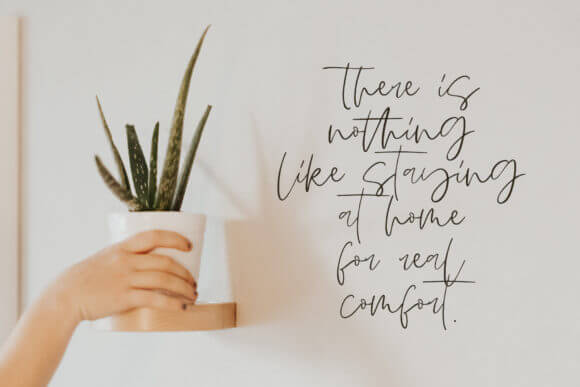 there is
nothing
like staying
at home
for real
comfort.